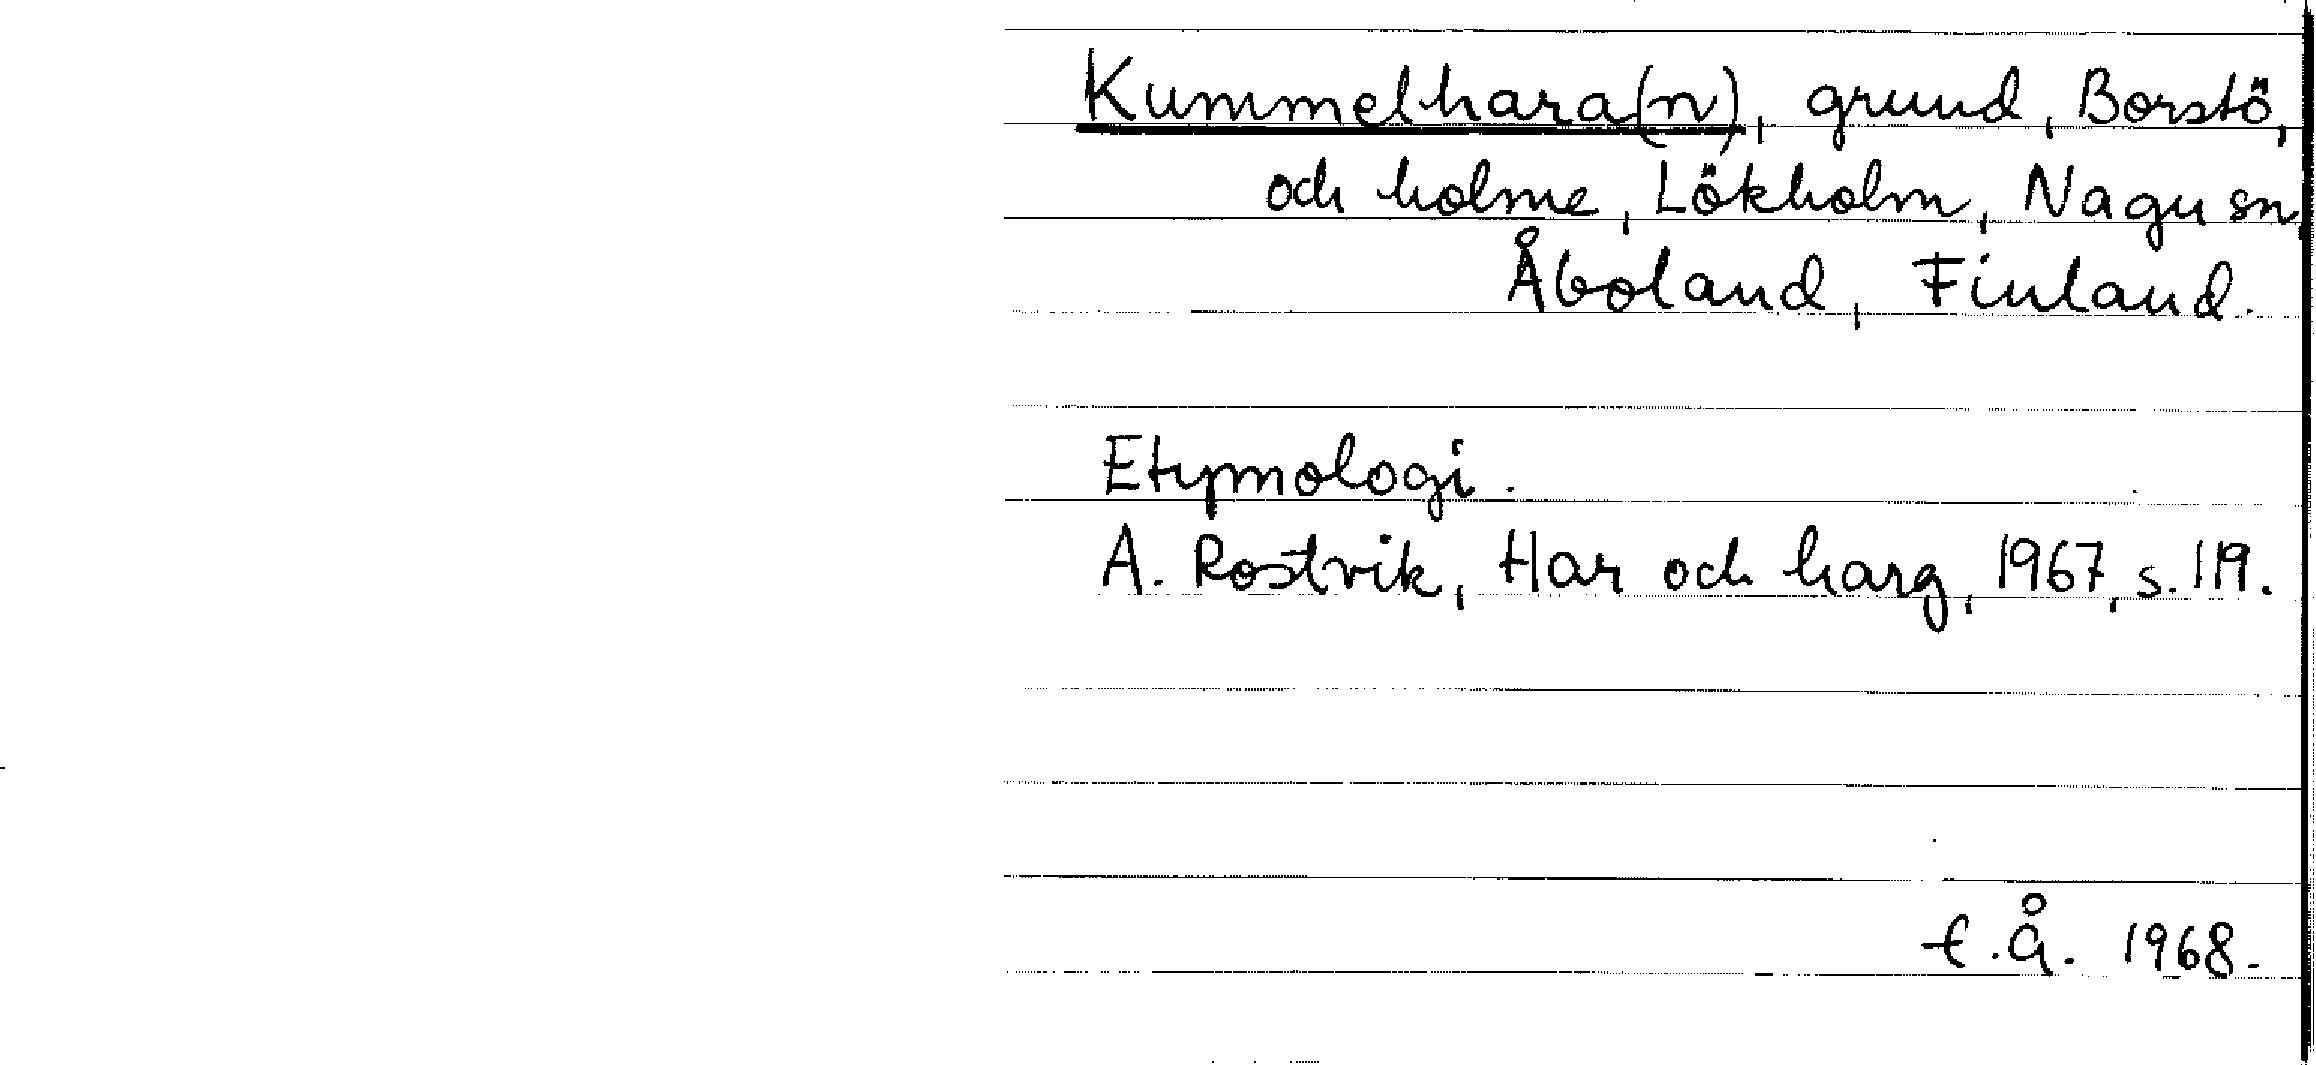 Kummelhara(n), grund, Borstö,
och holme, Lökholm, Nagu sn,
Åboland, Finland.
Etymologi.
A. Rostvik, Har och harg, 1967, s. 119.
E.Å. 1968.